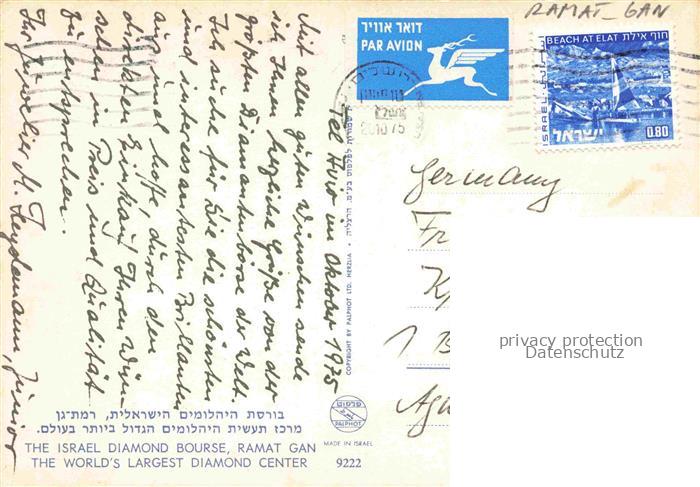 RAMAT-GAN
דואר אוויר
PAR AVION
חוף אילת
BEACH AT ELAT
ISRAEL
ישראל
0.80
ירושלים
20.10.75
Tel Aviv im Oktober 1975
Mit allen guten Wünschen sende
ich Ihnen herzliche Grüße von der
größten Diamantenbörse der Welt.
Ich suche für Sie die schönsten
und interessantesten Brillanten
aus und hoffe, durch den
direkten Einkauf Ihren Wün-
schen in Preis und Qualität
zu entsprechen.
Ihr Juwelier H. Heydemann, Junior
Germany
Fr
K
1 B
COPYRIGHT BY PALPHOT LTD. HERZLIA
פלפוט
PALPHOT
MADE IN ISRAEL
בורסת היהלומים הישראלית, רמת־גן
מרכז תעשית היהלומים הגדול ביותר בעולם.
THE ISRAEL DIAMOND BOURSE, RAMAT GAN
THE WORLD'S LARGEST DIAMOND CENTER
9222
privacy protection
Datenschutz